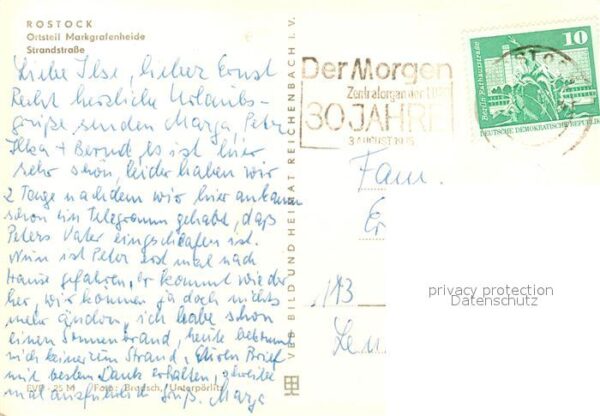 ROSTOCK
Ortsteil Markgrafenheide
Strandstraße
Liebe Ilse, lieber Ernst
Recht herzliche Urlaubs-
grüße senden Marga, Peter
Ilka + Bernd, es ist hier
sehr schön, leider haben wir
2 Tage nachdem wir hier ankamen
schon ein Telegramm gehabt, daß
Peters Vater eingeschlafen ist.
Nun ist Peter erst mal nach
Hause gefahren, er kommt wieder
her, wir können ja doch nichts
mehr ändern, ich habe schon
einen Sonnenbrand, heute bekommt
mich keiner zum Strand, Euren Brief
mit bestem Dank erhalten, schreibe
mal ausführlich Gruß. Marga
EVP -,25 M Foto: Brodsch, Unterpörlitz
VEB BILD UND HEIMAT REICHENBACH I. V.
Der Morgen
Zentralorgan der LDPD
30 JAHRE
3 AUGUST 1975
10
Berlin Rathausstraße
DEUTSCHE DEMOKRATISCHE REPUBLIK
Fam.
193
privacy protection
Datenschutz